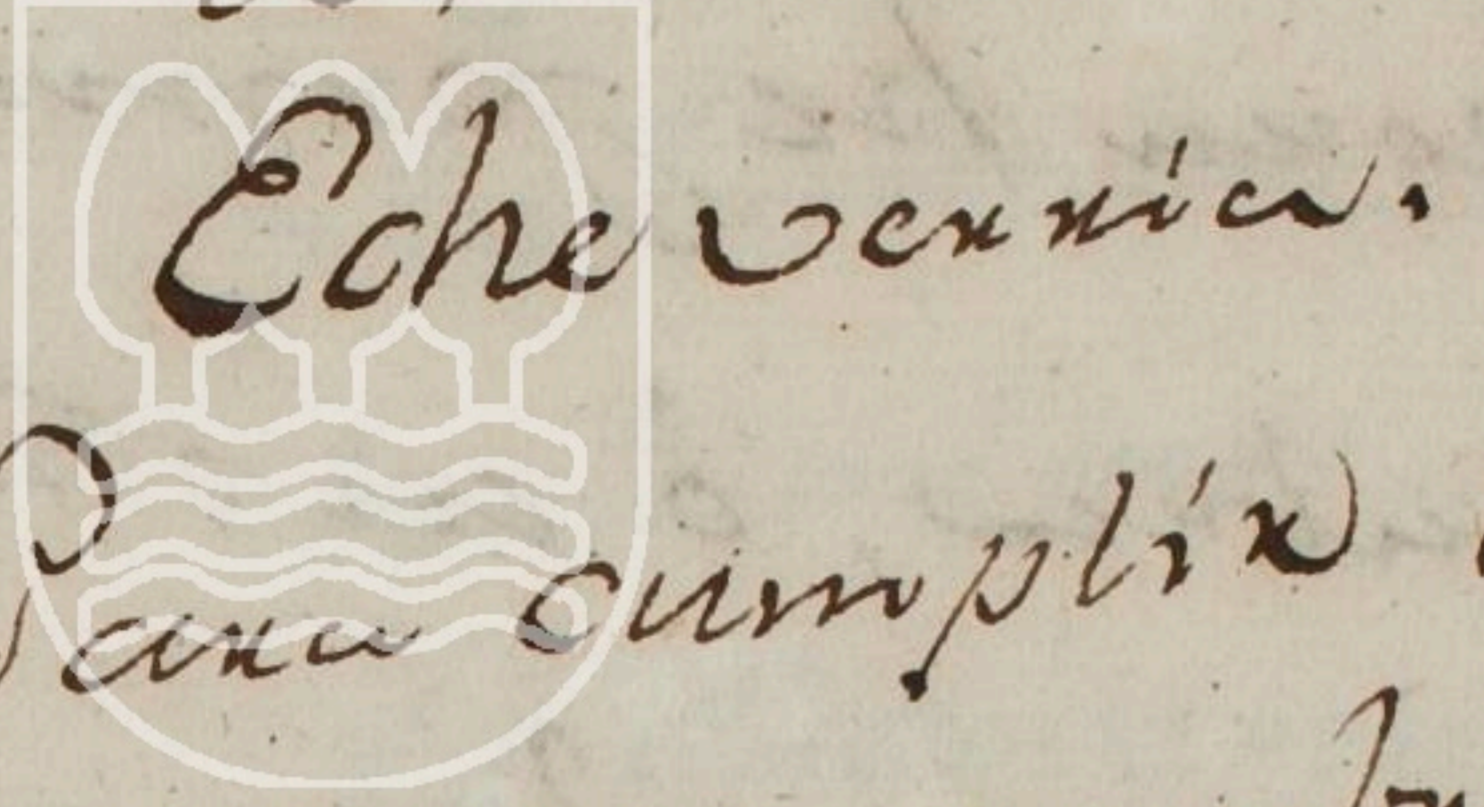 Echeverria.
Para cumplir